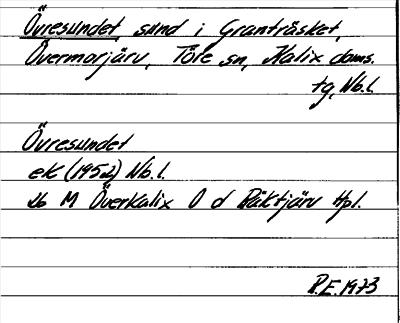 Övresundet, sund i Granträsket,
Övermorjärv, Töre sn, Kalix doms.
tg, Nb.l.
Övresundet
ek (1952) Nb.l.
26 M Överkalix O d Räktjärv Hpl.
P.E. 1973